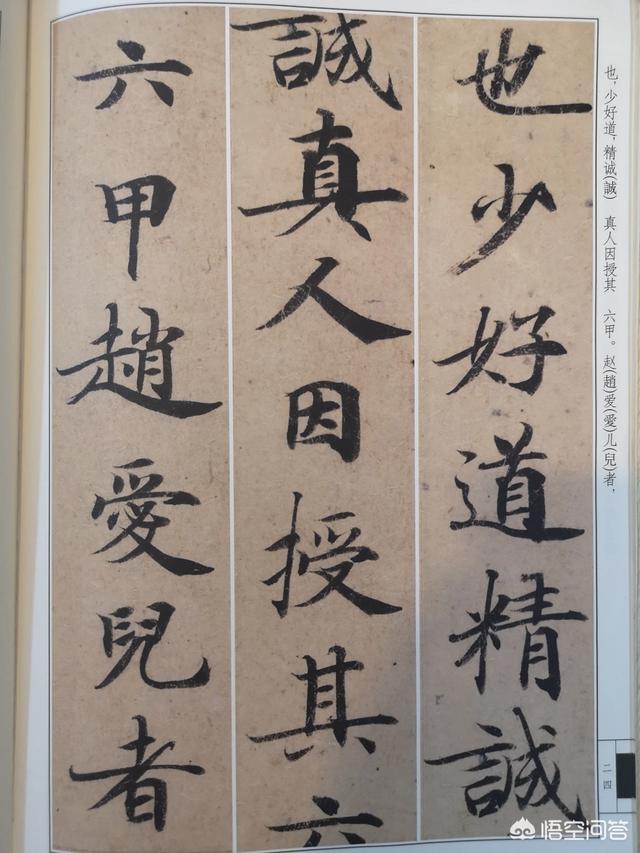 也少好道精誠
誠真人因授其六
六甲趙愛兒者
也，少好道，精诚(誠) 真人因授其 六甲。赵(趙)爱(愛)儿(兒)者，
二四
悟空问答